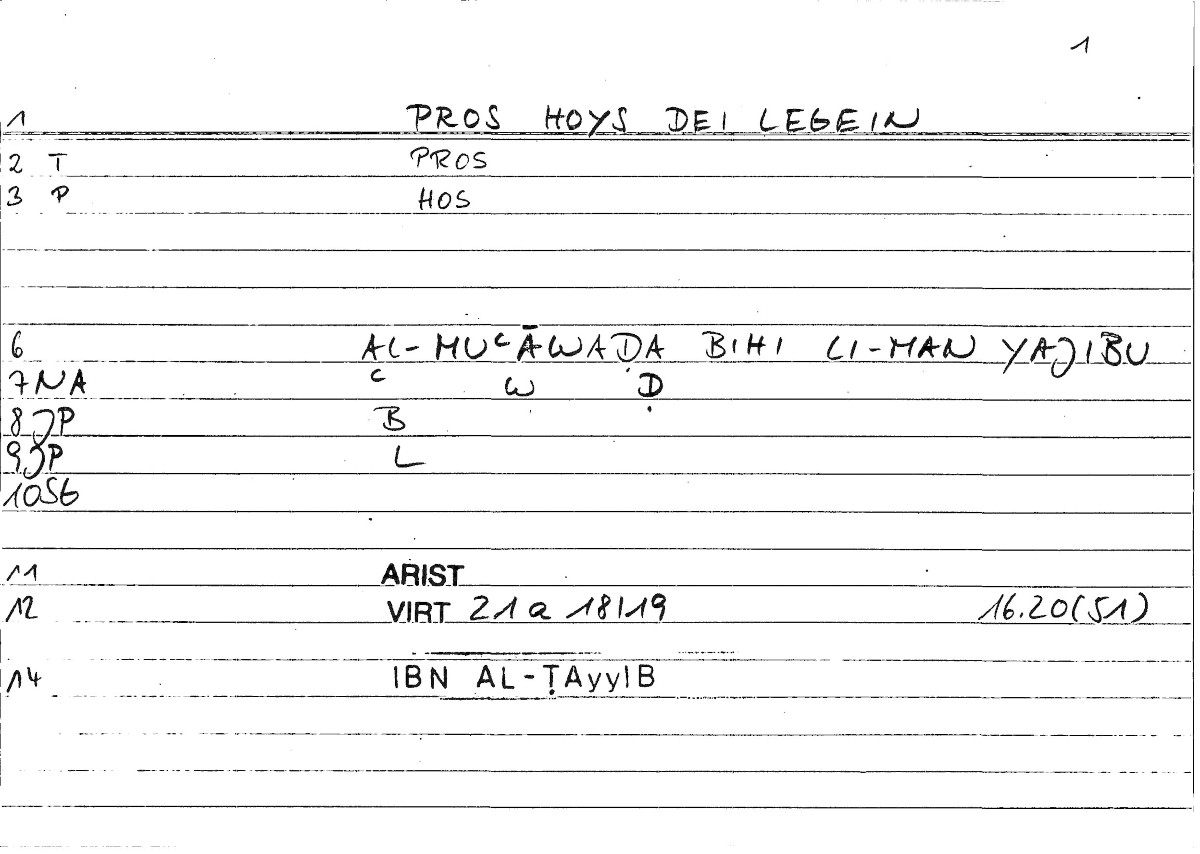 1
1 PROS HOYS DEI LEGEIN
2 T PROS
3 P HOS
6 AL-MUʿĀWAḌA BIHI LI-MAN YAJIBU
7 NA ʿ W Ḍ
8 JP B
9 JP L
10 SG
11 ARIST
12 VIRT 21 a 18|19 16.20(51)
14 IBN AL-ṬAyyIB